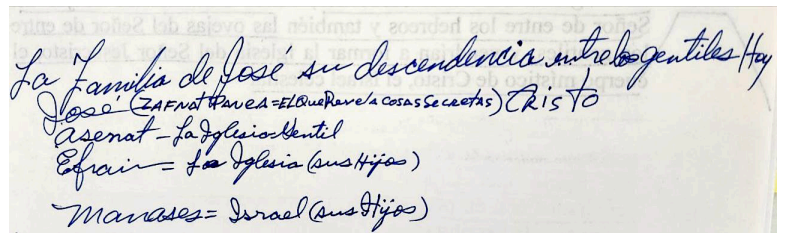 La Familia de José su descendencia entre los gentiles Hoy
José (ZAFNAT PANEA = EL Que Revela COSAS SecReTAS) CRISTO
Asenat - La Iglesia Gentil
Efrain = La Iglesia (sus Hijos)
Manases = Israel (sus Hijos)